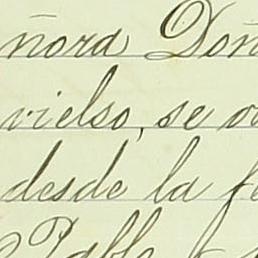 ñora Doñ
vielso, se o
desde la fe
Pablo